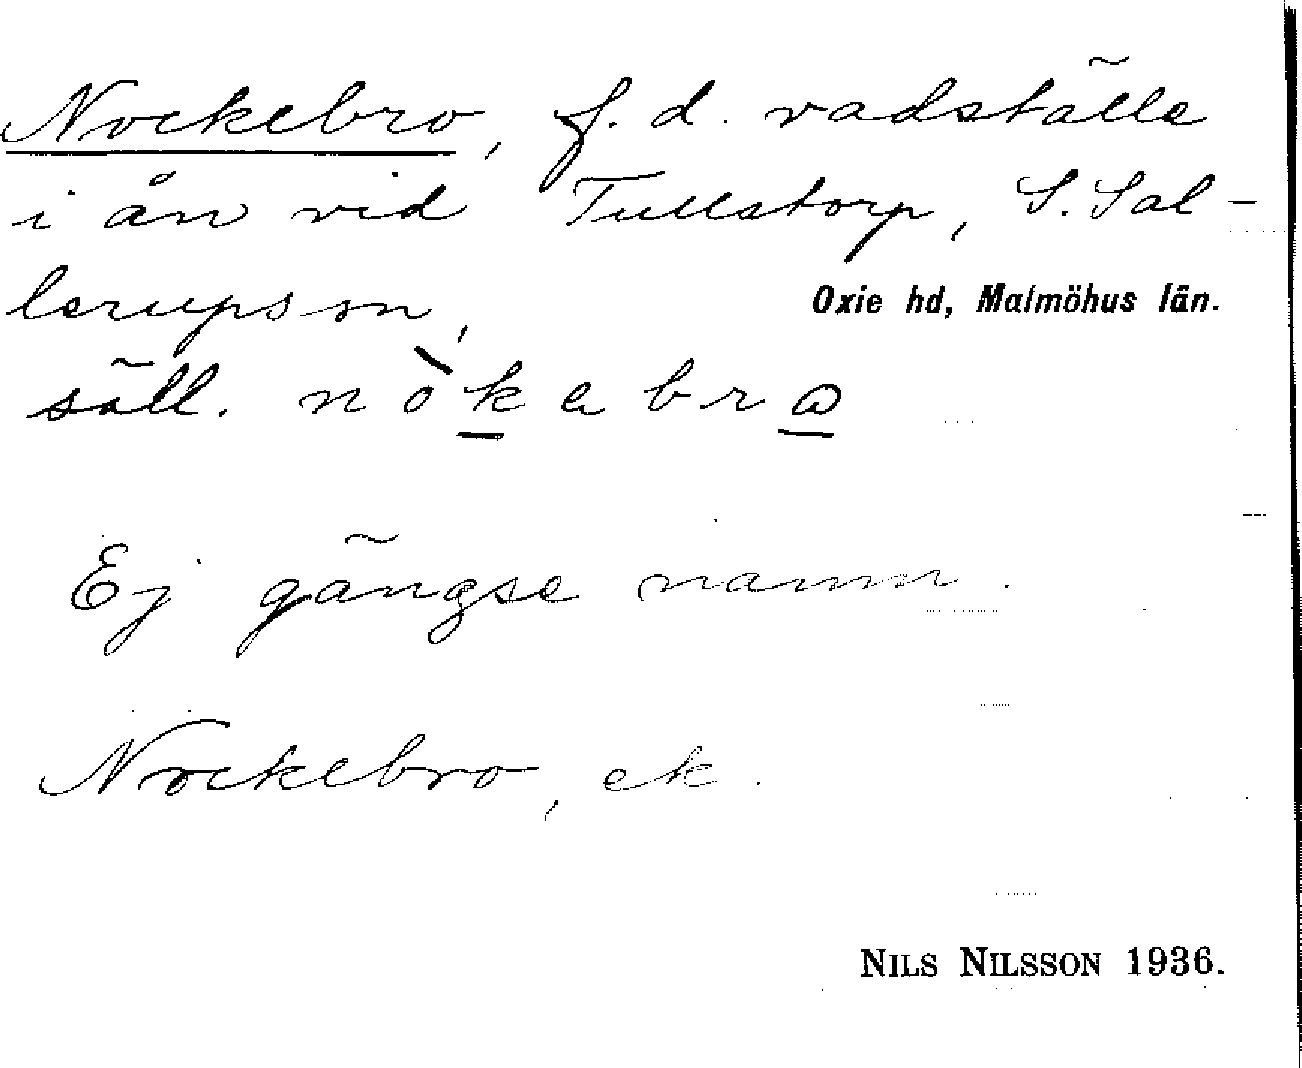 Nockebro, f. d. vadställe
i ån vid Tullstorp, S. Sal-
lerupssn,
Oxie hd, Malmöhus län.
säll. nòkebrω
Ej gängse namn.
Nockebro, ek.
NILS NILSSON 1936.